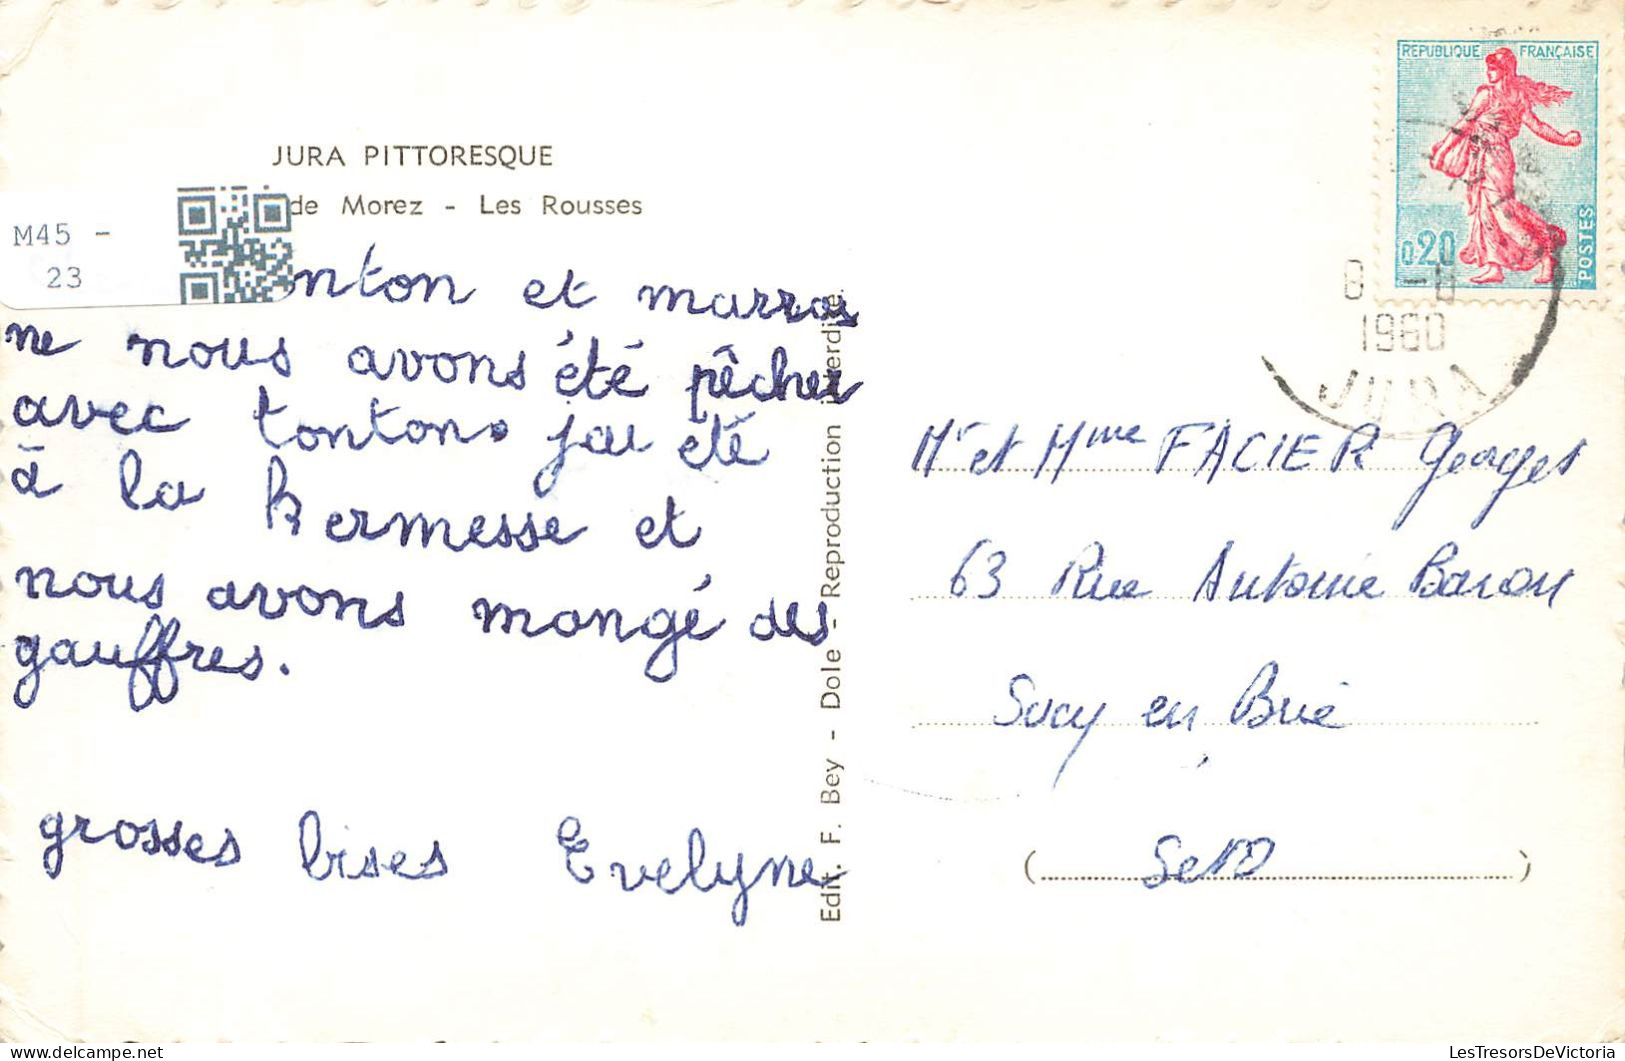 JURA PITTORESQUE
de Morez - Les Rousses
M45 -
23
nton et marrai
ne nous avons été pêcher
avec tonton. j'ai été
à la kermesse et
nous avons mangé des
gauffres.
grosses bises Evelyne
Edit. F. Bey - Dole - Reproduction interdite.
REPUBLIQUE FRANÇAISE
0,20
POSTES
1960
JURA
Mr et Mme FACIER Georges
63 Rue Antoine Baron
Sucy en Brie
( S et O )
LesTresorsDeVictoria